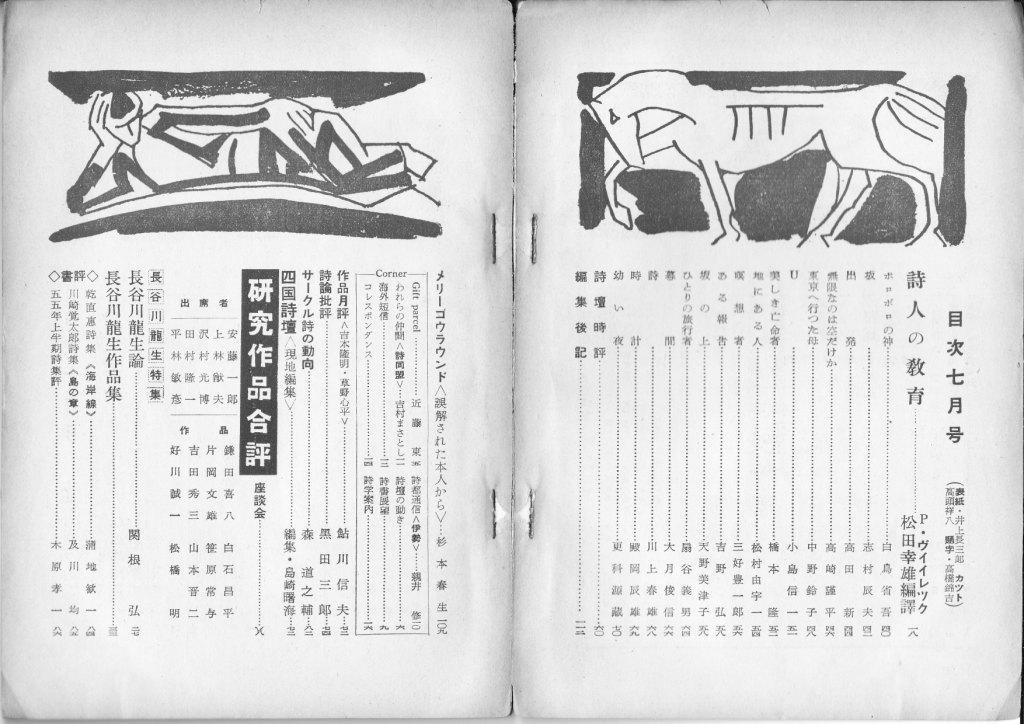 目次七月号
(表紙・井上長三郎 カツト
高頭祥八 題字・高橋錦吉)
詩人の敎育 P・ヴイイレツク
松田幸雄編譯 一八
ボロボロの神 白鳥省吾 四〇
坂 志村辰夫 四二
出発 高田新 四四
無限なのは空だけか 高崎謹平 四六
東京へ行つた母 中野鈴子 四八
U 小島信一 五二
美しき亡命者 橋本隆 五三
地にある人 松村由宇一 五四
瞑想者 三好豊一郎 五六
ある報告 吉野弘 五八
坂の上 天野美津子 五九
ひとりの旅行者 扇谷義男 六四
暮間 大月俊信 六六
詩 川上春雄 六八
時計 殿岡辰雄 六九
幼い夜 更科源蔵 七〇
詩壇時評 六〇
編集後記 一一二
メリーゴウラウンド<誤解された本人から> 杉本春生 一〇九
Corner
Gift parcel 近藤東
われらの仲間<詩同盟> 吉村まさとし 一一
海外短信 一三
コレスポンダンス 一四
詩都通信<伊勢> 親井修 一〇
詩壇の動き 六
詩書展望 九
詩学案内 一六
作品月評<吉本隆明・草野心平> 鮎川信夫 七三
詩論批評 黒田三郎 七四
サークル詩の動向 森道之輔 八二
四国詩壇<現地編集> 編集・島崎曙海 七二
研究作品合評 座談会 八
出席者
安藤一郎
上林猷夫
沢村光博
田村隆一
平林敏彦
作品
鎌田喜八
片岡文雄
吉田秀三
好川誠一
白石昌平
笹原常与
山本晋二
松橋明
長谷川龍生特集
長谷川龍生論 関根弘
長谷川龍生作品集
◇書評◇
乾直惠詩集《海岸線》 蒲地歓一 八四
川崎覚太郎詩集《島の章》 及川均 八五
五五年上半期詩集評 木原孝一 八六